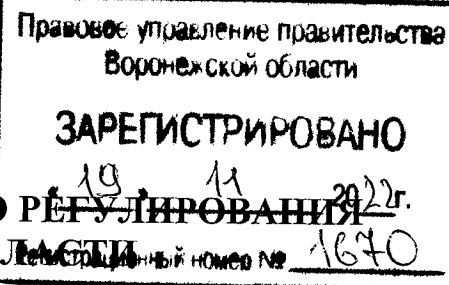 Правовое управление правительства
Воронежской области
ЗАРЕГИСТРИРОВАНО
"19" 11 2022г.
РЕГУЛИРОВАНИЯ
Регистрационный номер № 1670